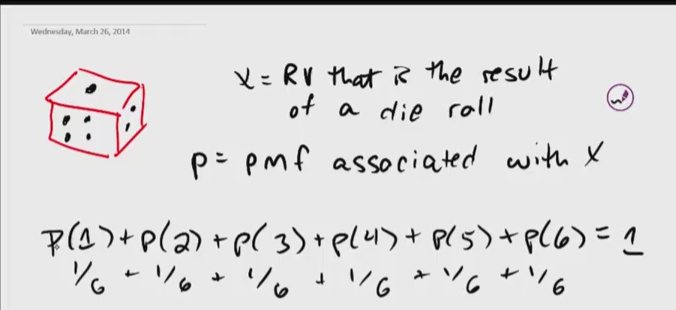 Wednesday, March 26, 2014
X = RV that is the result
of a die roll
p = pmf associated with X
P(1) + P(2) + P(3) + P(4) + P(5) + P(6) = 1
1/6 + 1/6 + 1/6 + 1/6 + 1/6 + 1/6